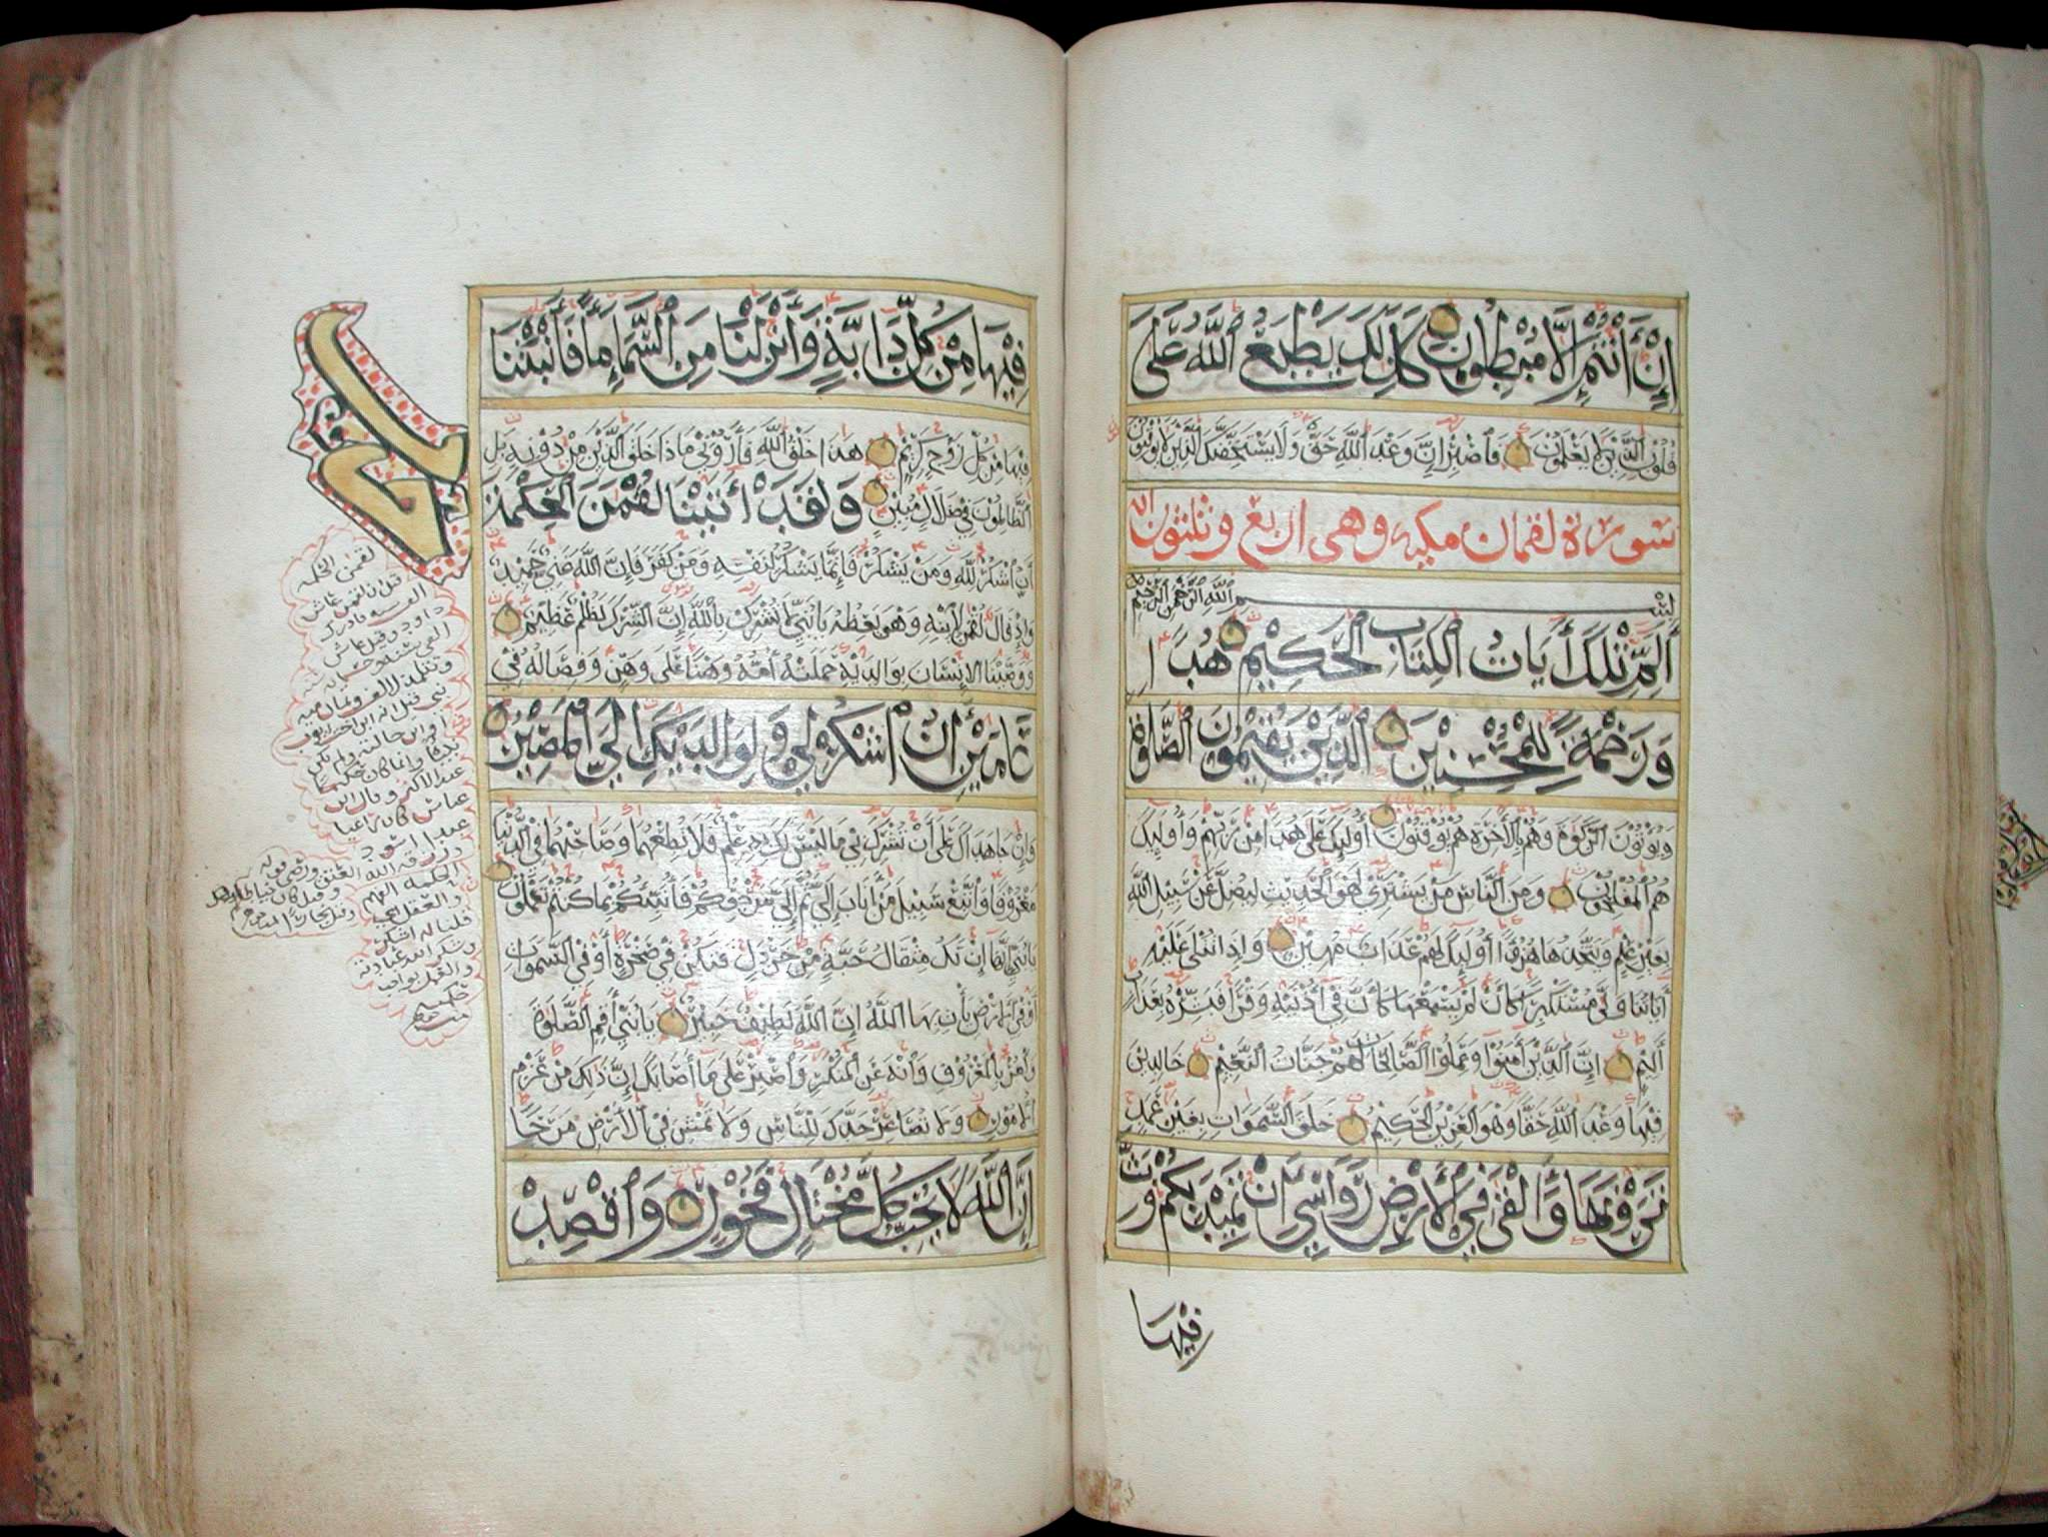 إِنْ أَنْتُمْ إِلَّا مُبْطِلُونَ كَذَلِكَ يَطْبَعُ اللَّهُ عَلَى
قُلُوبِ الَّذِينَ لَا يَعْلَمُونَ فَاصْبِرْ إِنَّ وَعْدَ اللَّهِ حَقٌّ وَلَا يَسْتَخِفَّنَّكَ الَّذِينَ لَا يُوقِنُونَ
سورة لقمان مكية وهي اربع وثلثون اية
بِسْمِ اللَّهِ الرَّحْمَنِ الرَّحِيمِ
الم تِلْكَ أَيَاتُ الْكِتَابِ الْحَكِيمِ هُدًى
وَرَحْمَةً لِلْمُحْسِنِينَ الَّذِينَ يُقِيمُونَ الصَّلَوةَ
وَيُؤْتُونَ الزَّكَوةَ وَهُمْ بِالْأَخِرَةِ هُمْ يُوقِنُونَ أُولَئِكَ عَلَى هُدًى مِنْ رَبِّهِمْ وَأُولَئِكَ
هُمُ الْمُفْلِحُونَ وَمِنَ النَّاسِ مَنْ يَشْتَرِي لَهْوَ الْحَدِيثِ لِيُضِلَّ عَنْ سَبِيلِ اللَّهِ
بِغَيْرِ عِلْمٍ وَيَتَّخِذَهَا هُزُوًا أُولَئِكَ لَهُمْ عَذَابٌ مُهِينٌ وَإِذَا تُتْلَى عَلَيْهِ
أَيَاتُنَا وَلَّى مُسْتَكْبِرًا كَأَنْ لَمْ يَسْمَعْهَا كَأَنَّ فِي أُذُنَيْهِ وَقْرًا فَبَشِّرْهُ بِعَذَابٍ
أَلِيمٍ إِنَّ الَّذِينَ أَمَنُوا وَعَمِلُوا الصَّالِحَاتِ لَهُمْ جَنَّاتُ النَّعِيمِ خَالِدِينَ
فِيهَا وَعْدَ اللَّهِ حَقًّا وَهُوَ الْعَزِيزُ الْحَكِيمُ خَلَقَ السَّمَوَاتِ بِغَيْرِ عَمَدٍ
تَرَوْنَهَا وَأَلْقَى فِي الْأَرْضِ رَوَاسِيَ أَنْ تَمِيدَ بِكُمْ وَبَثَّ
فِيهَا
فِيهَا مِنْ كُلِّ دَابَّةٍ وَأَنْزَلْنَا مِنَ السَّمَاءِ مَاءً فَأَنْبَتْنَا
فِيهَا مِنْ كُلِّ زَوْجٍ كَرِيمٍ هَذَا خَلْقُ اللَّهِ فَأَرُونِي مَاذَا خَلَقَ الَّذِينَ مِنْ دُونِهِ بَلِ
الظَّالِمُونَ فِي ضَلَالٍ مُبِينٍ وَلَقَدْ أَتَيْنَا لُقْمَنَ الْحِكْمَةَ
أَنِ اشْكُرْ لِلَّهِ وَمَنْ يَشْكُرْ فَإِنَّمَا يَشْكُرُ لِنَفْسِهِ وَمَنْ كَفَرَ فَإِنَّ اللَّهَ غَنِيٌّ حَمِيدٌ
وَإِذْ قَالَ لُقْمَنُ لِابْنِهِ وَهُوَ يَعِظُهُ يَا بُنَيَّ لَا تُشْرِكْ بِاللَّهِ إِنَّ الشِّرْكَ لَظُلْمٌ عَظِيمٌ
وَوَصَّيْنَا الْإِنْسَانَ بِوَالِدَيْهِ حَمَلَتْهُ أُمُّهُ وَهْنًا عَلَى وَهْنٍ وَفِصَالُهُ فِي
عَامَيْنِ أَنِ اشْكُرْ لِي وَلِوَالِدَيْكَ إِلَيَّ الْمَصِيرُ
وَإِنْ جَاهَدَاكَ عَلَى أَنْ تُشْرِكَ بِي مَا لَيْسَ لَكَ بِهِ عِلْمٌ فَلَا تُطِعْهُمَا وَصَاحِبْهُمَا فِي الدُّنْيَا
مَعْرُوفًا وَاتَّبِعْ سَبِيلَ مَنْ أَنَابَ إِلَيَّ ثُمَّ إِلَيَّ مَرْجِعُكُمْ فَأُنَبِّئُكُمْ بِمَا كُنْتُمْ تَعْمَلُونَ
يَا بُنَيَّ إِنَّهَا إِنْ تَكُ مِثْقَالَ حَبَّةٍ مِنْ خَرْدَلٍ فَتَكُنْ فِي صَخْرَةٍ أَوْ فِي السَّمَوَاتِ
أَوْ فِي الْأَرْضِ يَأْتِ بِهَا اللَّهُ إِنَّ اللَّهَ لَطِيفٌ خَبِيرٌ يَا بُنَيَّ أَقِمِ الصَّلَوةَ
وَأْمُرْ بِالْمَعْرُوفِ وَانْهَ عَنِ الْمُنْكَرِ وَاصْبِرْ عَلَى مَا أَصَابَكَ إِنَّ ذَلِكَ مِنْ عَزْمِ
الْأُمُورِ وَلَا تُصَاعِرْ خَدَّكَ لِلنَّاسِ وَلَا تَمْشِ فِي الْأَرْضِ مَرَحًا
إِنَّ اللَّهَ لَا يُحِبُّ كُلَّ مُخْتَالٍ فَخُورٍ وَاقْصِدْ
لقمن الحكمة
قيل ان لقمن عاش
داود وقيل عاش
عباس كان راعيا
عبدا اسود